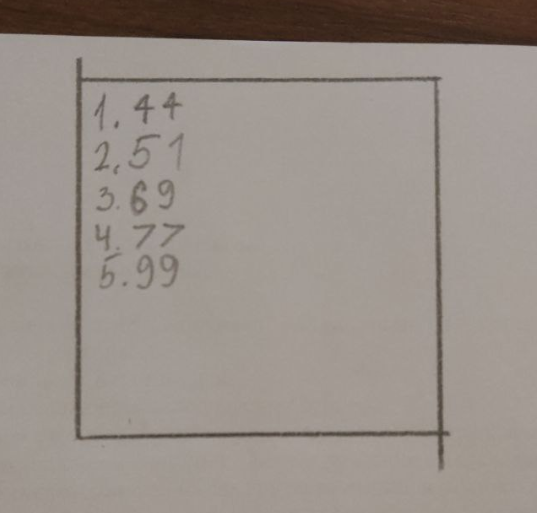 1. 44
2. 51
3. 69
4. 77
5. 99